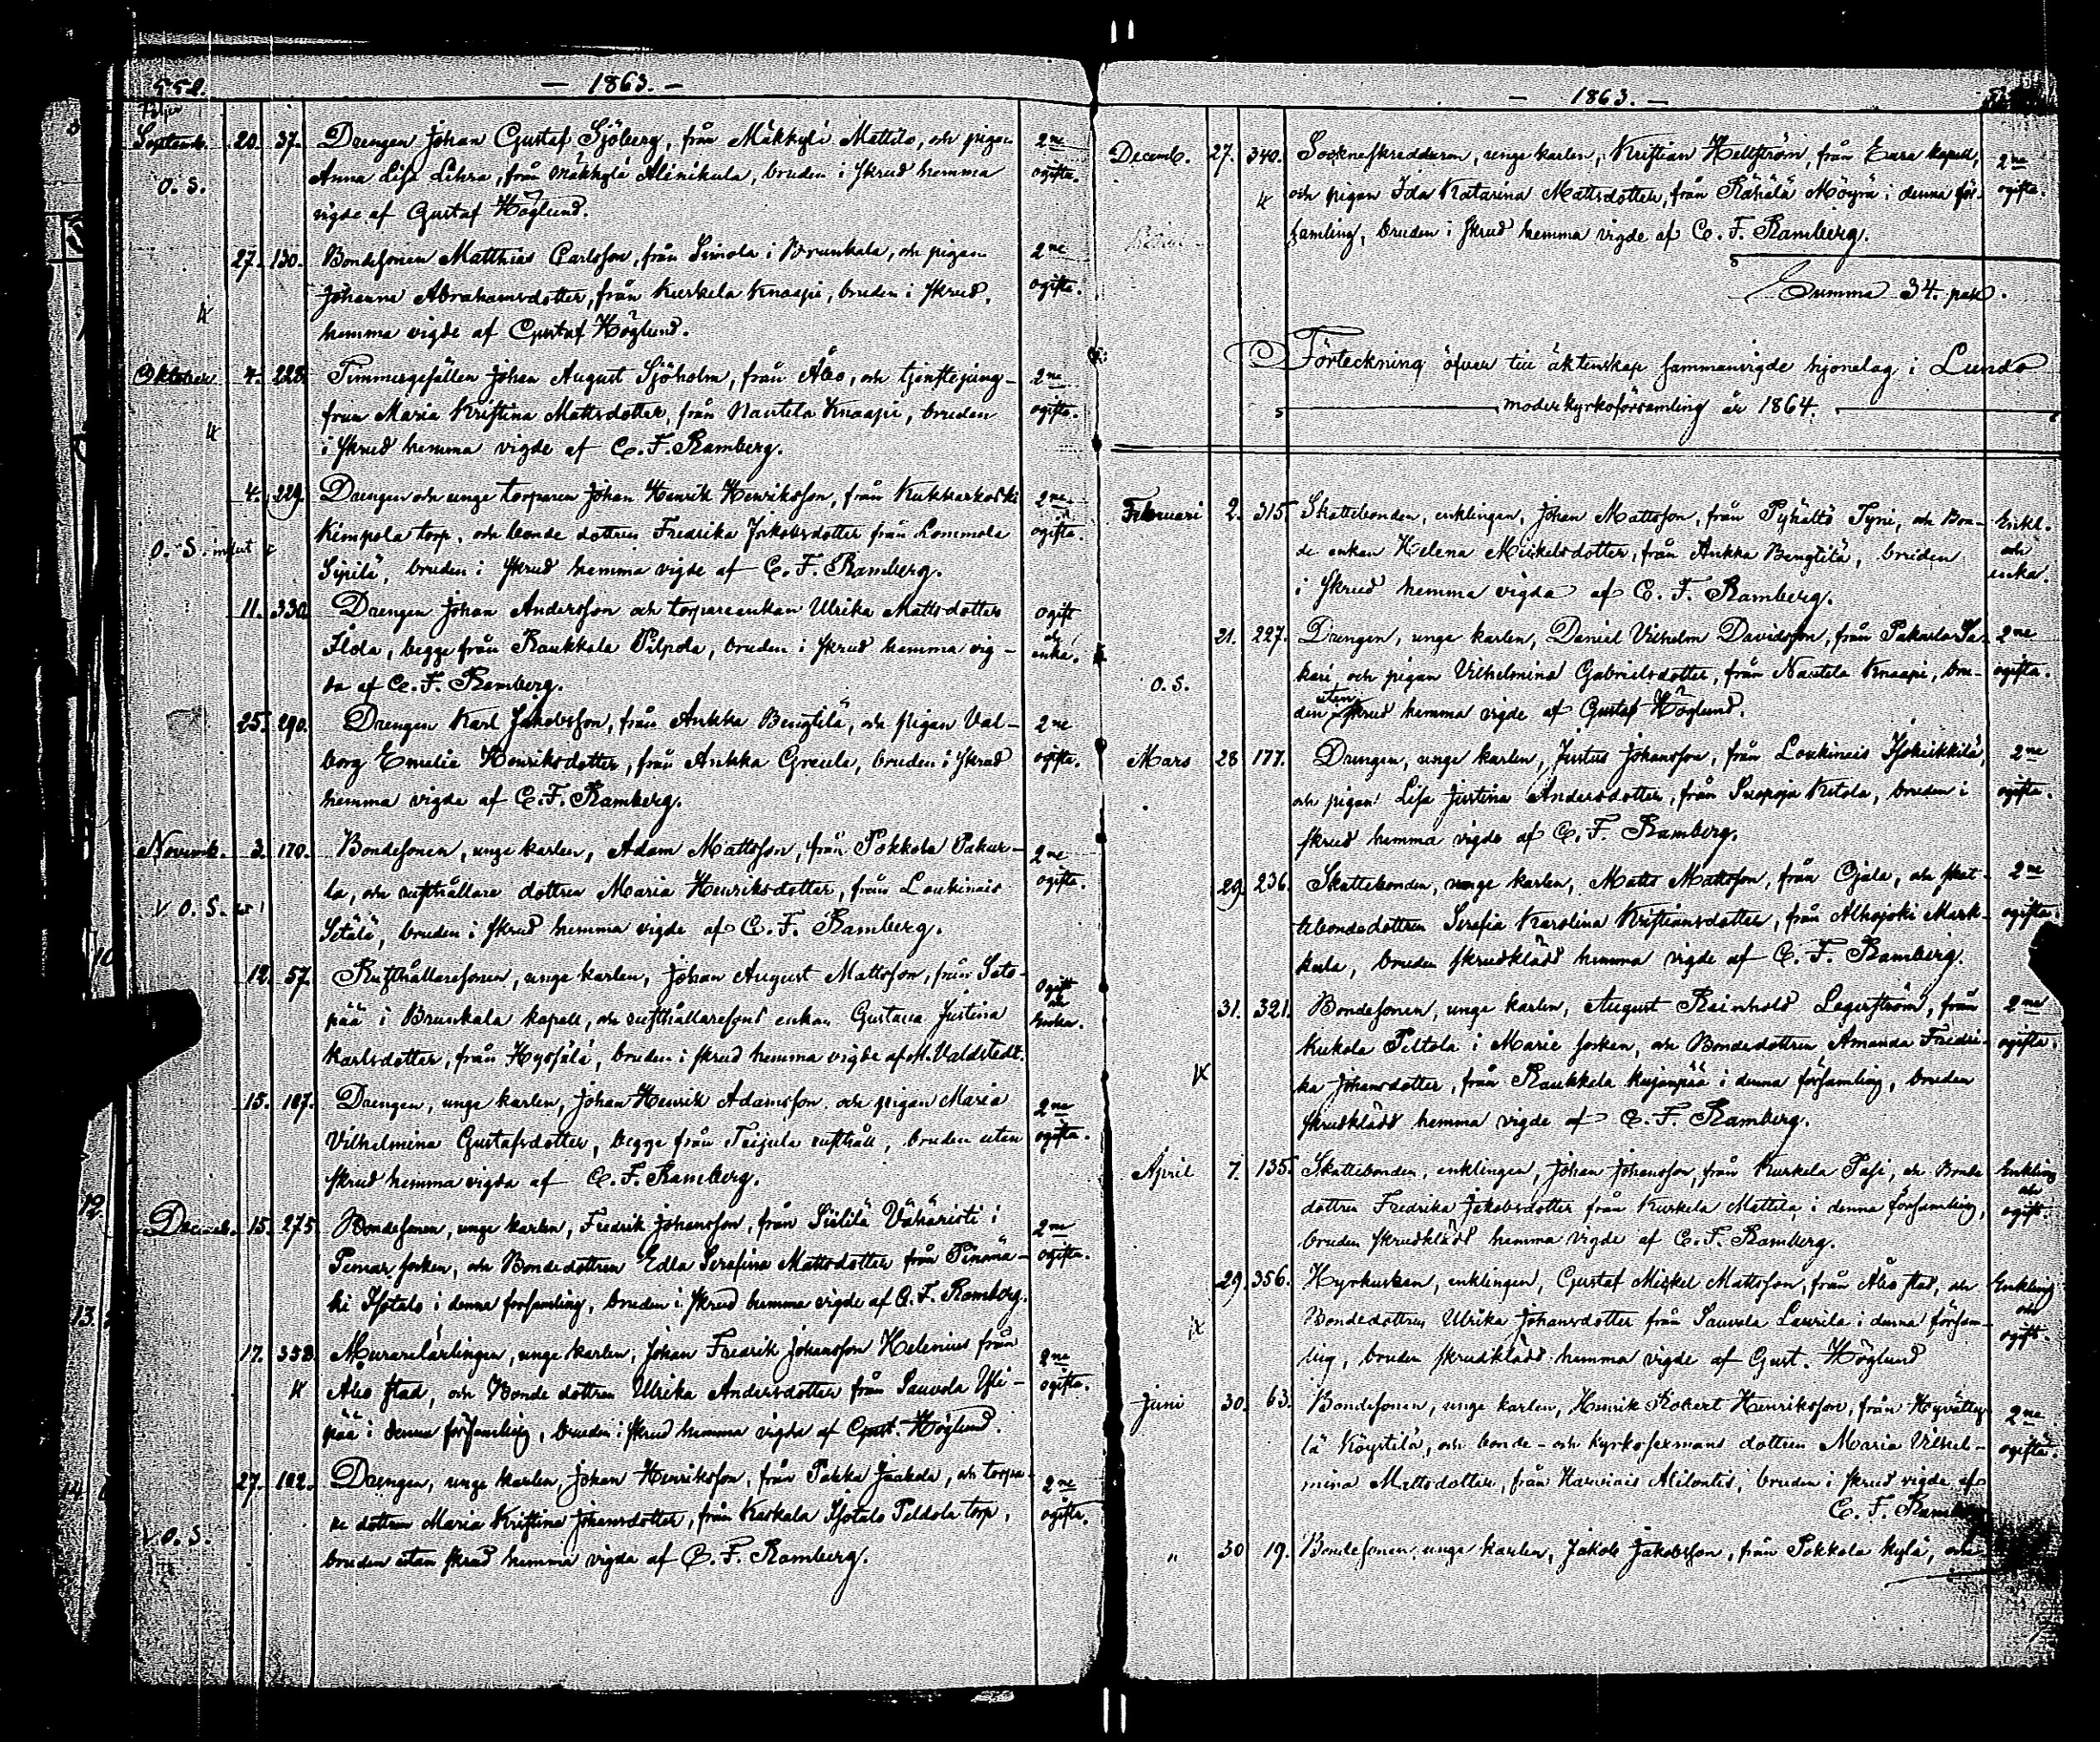 552.
— 1863. —
Septemb. 20. 37. Drengen Johan Gustaf Sjöberg, från Mäkkylä Mattila, och pigan 2ne
O. S. Anna Lisa Lehra, från Mäkkylä Alinikula, bruden i skrud hemma ogifta.
vigde af Gustaf Höglund.
27. 130. Bondesonen Matthias Carlsson, från Simola i Brunkala, och pigan 2ne
Johanna Abrahamsdotter, från Kurkela Knaapi, bruden i skrud, ogifta.
hemma vigde af Gustaf Höglund.
Oktober 4. 228. Timmergesällen Johan August Sjöholm, från Åbo, och tjenstejung- 2ne
frun Maria Kristina Mattsdotter, från Nautela Knaapi, bruden ogifta.
i skrud hemma vigde af C. F. Ramberg.
4. 229. Drengen och unge torparen Johan Henrik Henriksson, från Kukkarkoski 2ne
O. S. Kimpola torp, och bonde dottren Fredrika Jakobsdotter från Lommola ogifta.
Sipilä, bruden i skrud hemma vigde af C. F. Ramberg.
11. 330. Drengen Johan Andersson och torpareenkan Ulrika Mattsdotter ogift
Flola, begge från Raukkala Pilpola, bruden i skrud hemma vig- och enka.
da af C. F. Ramberg.
25. 290. Drengen Karl Jakobsson, från Ankka Bengtilä, och pigan Val- 2ne
borg Emelia Henriksdotter, från Ankka Greula, bruden i skrud ogifta.
hemma vigde af C. F. Ramberg.
Novemb. 3. 170. Bondesonen, unge karlen, Adam Mattsson, från Pokkola Pakur- 2ne
la, och rusthållare dottren Maria Henriksdotter, från Loukinais ogifta.
O. S. Setälä, bruden i skrud hemma vigde af C. F. Ramberg.
12. 57. Rusthållaresonen, unge karlen, Johan August Mattsson, från Sato- Ogift
pää i Brunkala kapell, och rusthållaresons enkan Gustava Justina och Enka.
Karlsdotter, från Hypsälä, bruden i skrud hemma vigde af M. Valdstedt.
15. 187. Drengen, unge karlen, Johan Henrik Adamsson och pigan Maria 2ne
Vilhelmina Gustafsdotter, begge från Teijula rusthåll, bruden utan ogifta.
skrud hemma vigda af C. F. Ramberg.
Decemb. 15. 275. Bondesonen, unge karlen, Fredrik Johansson, från Siililä Vähäristi i 2ne
Pemar socken, och Bondedottren Edla Serafina Mattsdotter från Pinomä- ogifta.
ki Isotalo i denna församling, bruden i skrud hemma vigde af C. F. Ramberg.
17. 358. Murarelärlingen, unge karlen, Johan Fredrik Johansson Helenius från 2ne
Åbo stad, och Bonde dottren Ulrika Andersdotter från Sauvola Yli- ogifta.
pää i denna församling, bruden i skrud hemma vigde af Gust. Höglund.
27. 182. Drengen, unge karlen Johan Henriksson, från Pakka Jaakola, och torpa- 2ne
re dottren Maria Kristina Johansdotter, från Kaskala Isotalo Peldola torp, ogifta.
O. S. bruden utan skrud hemma vigda af C. F. Ramberg.
— 1863. —
Decemb. 27. 340. Sockneskreddaren, unge karlen, Kristian Hellström, från Eura kapell, 2ne
och pigan Ida Katarina Mattsdotter, från Rähälä Möyrä i denna för- ogifta.
samling, bruden i skrud hemma vigde af C. F. Ramberg.
Summa 34. par.
Förteckning öfver till äktenskap sammanvigde hjonelag i Lundo
moderkyrkoförsamling år 1864.
Februari 2. 315. Skattebonden, enklingen, Johan Mattsson, från Pyhältö Tyni, och Bon- Enkl.
de enkan Helena Mickelsdotter, från Ankka Bengtilä, bruden och
i skrud hemma vigda af C. F. Ramberg. enka.
21. 227. Drengen, unge karlen, Daniel Vilhelm Davidsson, från Pakurla Sa- 2ne
O. S. kari och pigan Vilhelmina Gabrielsdotter, från Nautela Knaapi, bru- ogifta.
den utan skrud hemma vigde af Gustaf Höglund.
Mars 28 177. Drengen, unge karlen, Justus Johansson, från Loukinais Isoheikkilä, 2ne
och pigan Lisa Justina Andersdotter, från Suopoja Ketola, bruden i ogifta.
skrud hemma vigde af C. F. Ramberg.
29. 236. Skattebonden, unge karlen, Matts Mattsson, från Ojala, och skat- 2ne
tebondedottren Serafia Karolina Kristiansdotter, från Alhojoki Mark- ogifta.
kula, bruden skrudklädd hemma vigde af C. F. Ramberg.
31. 321. Bondesonen, unge karlen, August Reinhold Lagerström, från 2ne
Kukola Peltola i Marie socken, och Bondedottren Amanda Fredri- ogifta.
ka Johansdotter, från Raukkala Kujanpää i denna församling, bruden
skrudklädd hemma vigde af C. F. Ramberg.
April 7. 135. Skattebonden, enklingen, Johan Johansson, från Kurkela Pasi, och Bonde Enkling
dottren Fredrika Jakobsdotter från Kurkela Mattila i denna församling, och ogift.
bruden skrudklädd hemma vigde af C. F. Ramberg.
29. 356. Hyrkusken, enklingen, Gustaf Mickel Mattsson, från Åbo stad, och Enkling
Bondedottren Ulrika Johansdotter från Sauvola Laurila i denna försam- och
ling, bruden skrudklädd hemma vigde af Gust. Höglund ogift.
Juni 30. 63. Bondesonen, unge karlen, Henrik Robert Henriksson, från Hyvätty- 2ne
lä Köystilä, och bonde- och kyrkosexmans dottren Maria Vilhel- ogifta.
mina Mattsdotter, från Harvinais Alilontis, bruden i skrud vigde af
C. F. Ramberg
" 30 19. Bondesonen, unge karlen, Jakob Jakobsson, från Pokkola kylä, och